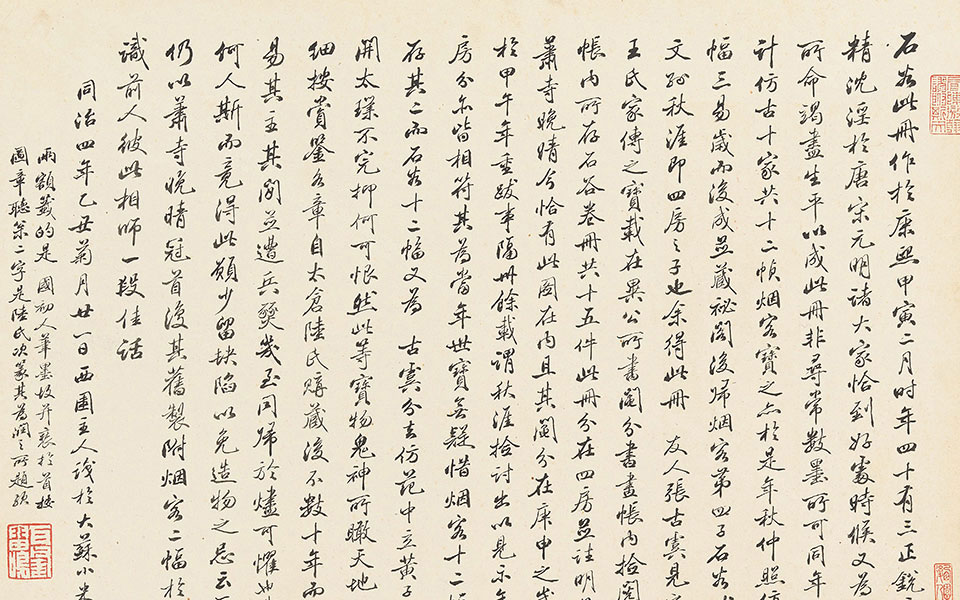 石谷此冊作於康熙甲寅二月时年四十有三正銳
精沈淫於唐宋元明诸大家恰到好處時候又為
所命竭盡生平以成此冊非尋常数墨所可同年
计仿古十家共十二帧烟客寶之亦於是年秋仲照仿
幅三易歲而後成並藏祕阁後帰烟客第四子石
文孙秋涯即四房之子也余得此冊 友人張古雲見
王氏家傳之寶載在異公所書阄分書畫帳内拾阄
帳内所存石谷卷冊共十五件此冊分在四房並註明
蕭寺晚晴今恰有此图在内且其阄分在庚申之
於甲午年重跋事隔卅餘載谓秋涯拾讨出以見示
房分亦皆相符其為當年世寶無疑惜烟客十二
存其二而石谷十二幅又為 古雲分去仿范中立黄子
開太璞不完抑何可恨然此等寶物鬼神所瞰天地
细按賞鑒各章自太倉陸氏購藏後不数十年而
易其主其间並遭兵燹幾至同帰於燼可懼也
何人斯而竟得此顧少留缺陷以免造物之忌云
仍以蕭寺晚晴冠首後其舊製附烟客二幅於
識前人彼此相师一段佳话
同治四年乙丑菊月廿一日西圃主人識於大蘇小米
兩額簽的是 國初人筆墨故并裹於首按
圖章聽菜二字是陸氏次篆其為潤之所題